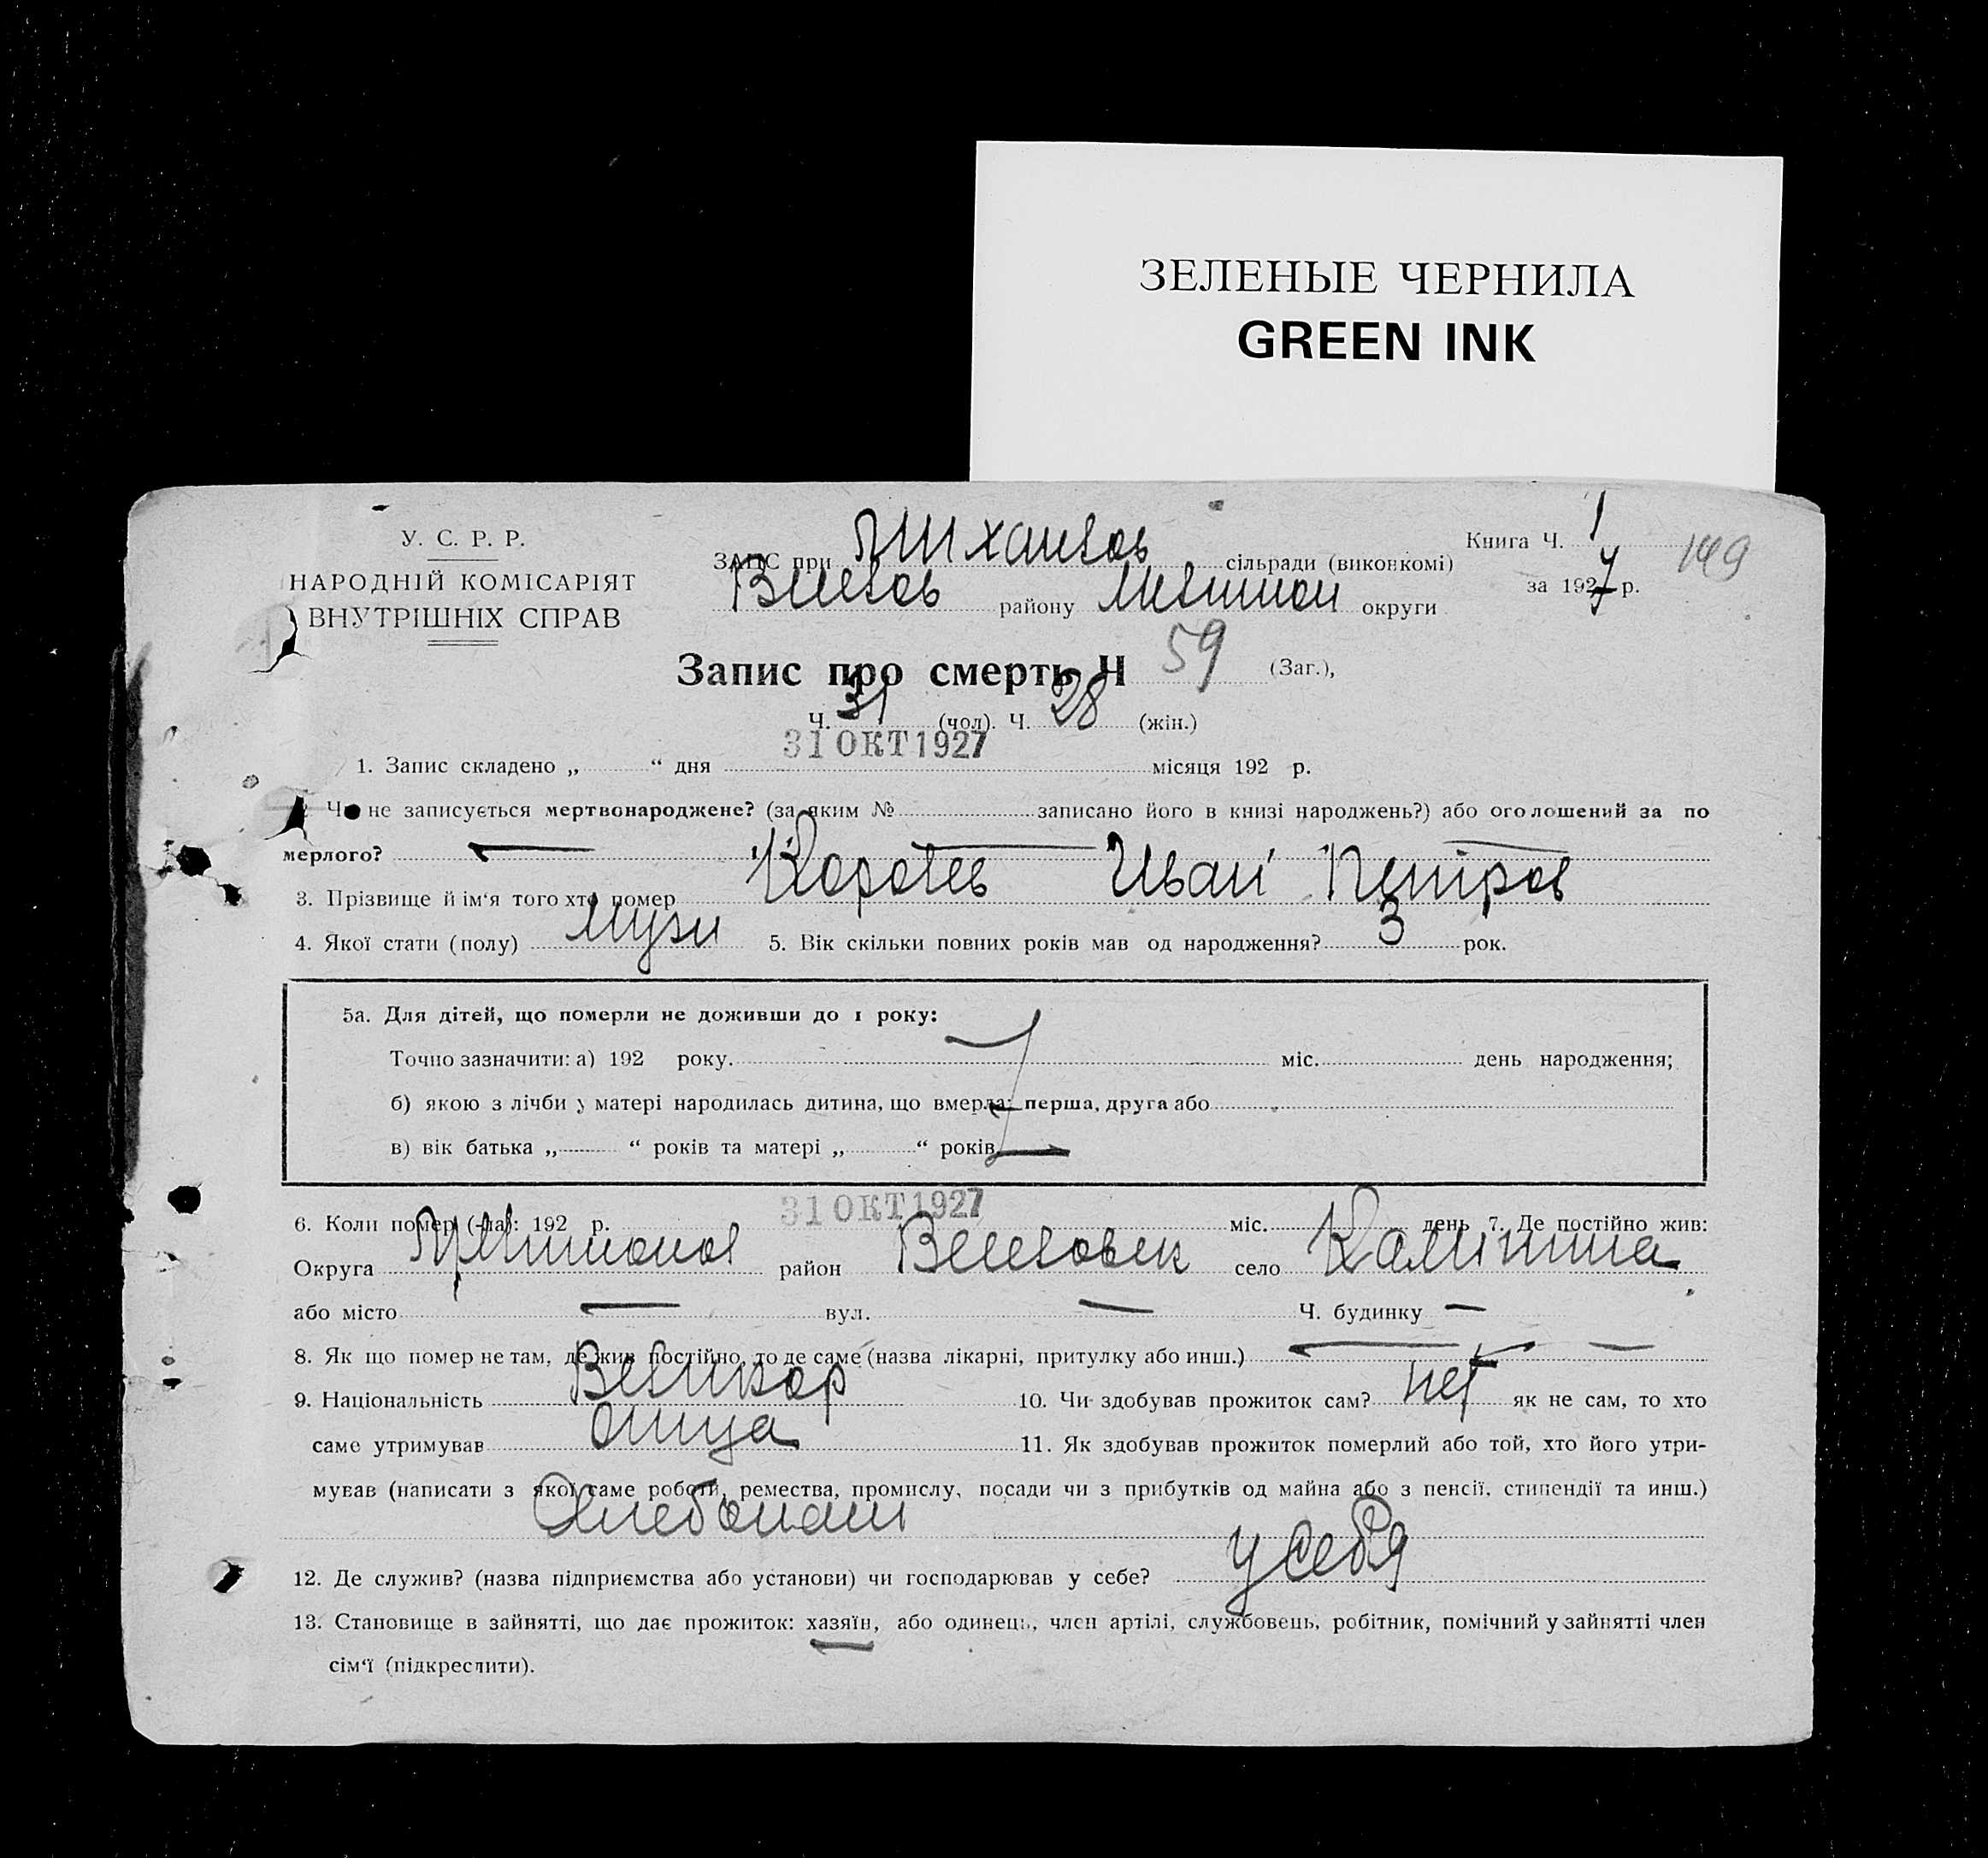 ЗЕЛЕНЫЕ ЧЕРНИЛА
GREEN INK
У. С. Р. Р.
НАРОДНІЙ КОМІСАРІЯТ
ВНУТРІШНІХ СПРАВ
ЗАПС при сільради (виконкомі)
району округи
Книга Ч. 1
149
за 1927 р.
Запис про смерть Ч 59 (Заг.),
Ч. 31 (чол). Ч. 28 (жін.)
31 ОКТ 1927
1. Запис складено „ “ дня місяця 192 р.
не записується мертвонароджене? (за яким № записано його в книзі народжень?) або оголошений за по
мерлого? —
3. Прізвище й ім‘я того хто помер Иван Петров
4. Якої стати (полу) мужч 5. Вік скільки повних років мав од народження? 3 рок.
5а. Для дітей, що померли не доживши до 1 року:
Точно зазначити: а) 192 року. міс. день народження;
б) якою з лічби у матері народилась дитина, що вмерла: перша, друга або
в) вік батька „ “ років та матері „ “ років
31 ОКТ 1927
6. Коли помер (-ла): 192 р. міс. день 7. Де постійно жив:
Округа район село
або місто — вул. — Ч. будинку —
8. Як що помер не там, де жив постійно, то де саме (назва лікарні, притулку або инш.) —
9. Національність Великор 10. Чи здобував прожиток сам? нет як не сам, то хто
саме утримував отца 11. Як здобував прожиток померлий або той, хто його утри-
мував (написати з якої саме роботи, ремества, промислу, посади чи з прибутків од майна або з пенсії, стипендії та инш.)
Хлебопаш
12. Де служив? (назва підприємства або установи) чи господарював у себе? у себя
13. Становище в зайнятті, що дає прожиток: хазяїн, або одинець, член артілі, службовець, робітник, помічний у зайнятті член
сім‘ї (підкреслити).